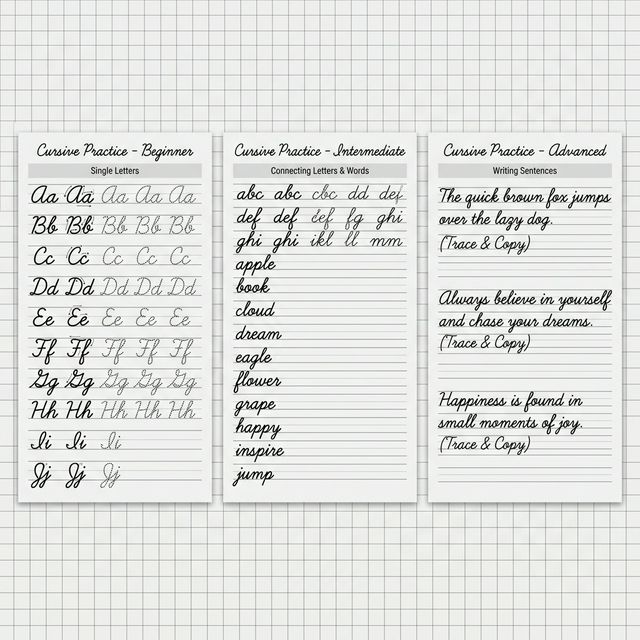 Cursive Practice - Beginner
Single Letters
Aa Aa Aa Aa Aa
Bb Bb Bb Bb Bb
Cc Cc Cc Cc Cc
Dd Dd Dd Dd Dd
Ee Ee Ee Ee Ee
Ff Ff Ff Ff Ff
Gg Gg Gg Gg Gg
Hh Hh Hh Hh Hh
Ii Ii Ii
Jj Jj Jj
Cursive Practice - Intermediate
Connecting Letters & Words
abc abc cbc dd def
def def def fg ghi
ghi ghi ikl ll mm
apple
book
cloud
dream
eagle
flower
grape
happy
inspire
jump
Cursive Practice - Advanced
Writing Sentences
The quick brown fox jumps
over the lazy dog.
(Trace & Copy)
Always believe in yourself
and chase your dreams.
(Trace & Copy)
Happiness is found in
small moments of joy.
(Trace & Copy)